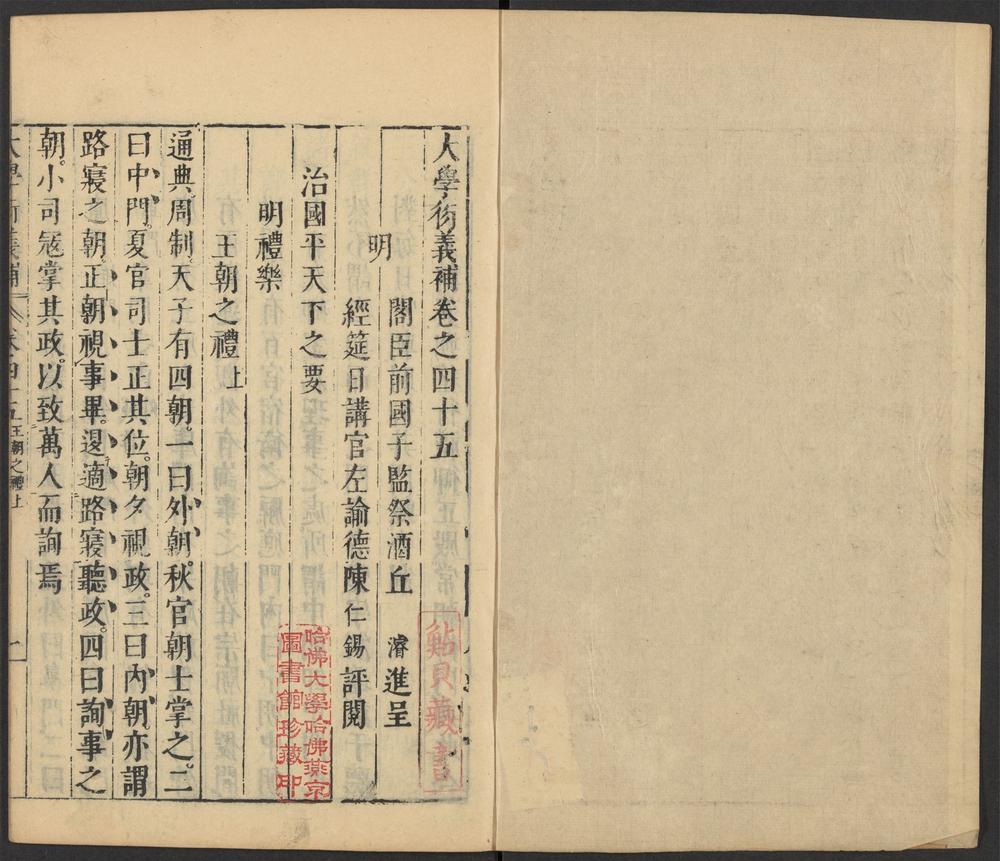 大學衍義補卷之四十五
明 閣臣前國子監祭酒丘 濬進呈
經筵日講官左諭德陳仁錫評閱
治國平天下之要
明禮樂
王朝之禮上
通典周制天子有四朝。一曰外朝。秋官朝士掌之。二
曰中門。夏官司士正其位。朝夕視政。三曰內朝。亦謂
路寢之朝。正朝視事畢。退適路寢聽政。四曰詢事之
朝。小司冦掌其政。以致萬人而詢焉
大學衍義補 卷四十五 王朝之禮上 一
哈佛大學哈佛燕京
圖書館珍藏印